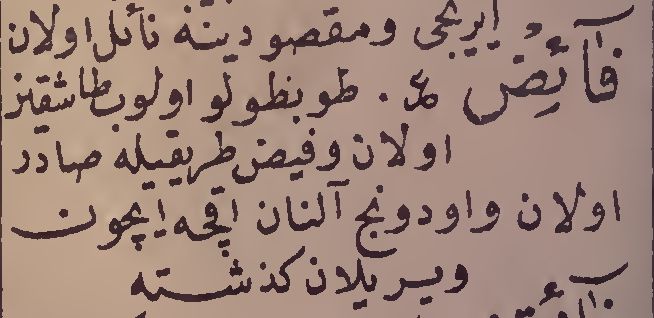 ايريجى ومقصودينه نائل اولان
فَآئِضْ ع. طوبطولو اولوب طاشقين
اولان وفيض طريقيله صادر
اولان واودونج آلنان اقچه ايچون
ويريلان كذشته